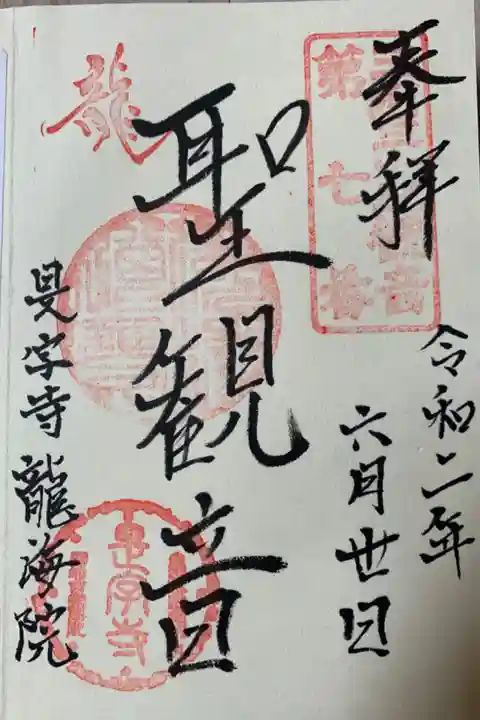 奉拝
第七番
令和二年
六月丗日
聖観音
龍
是字寺 龍海院
是字寺